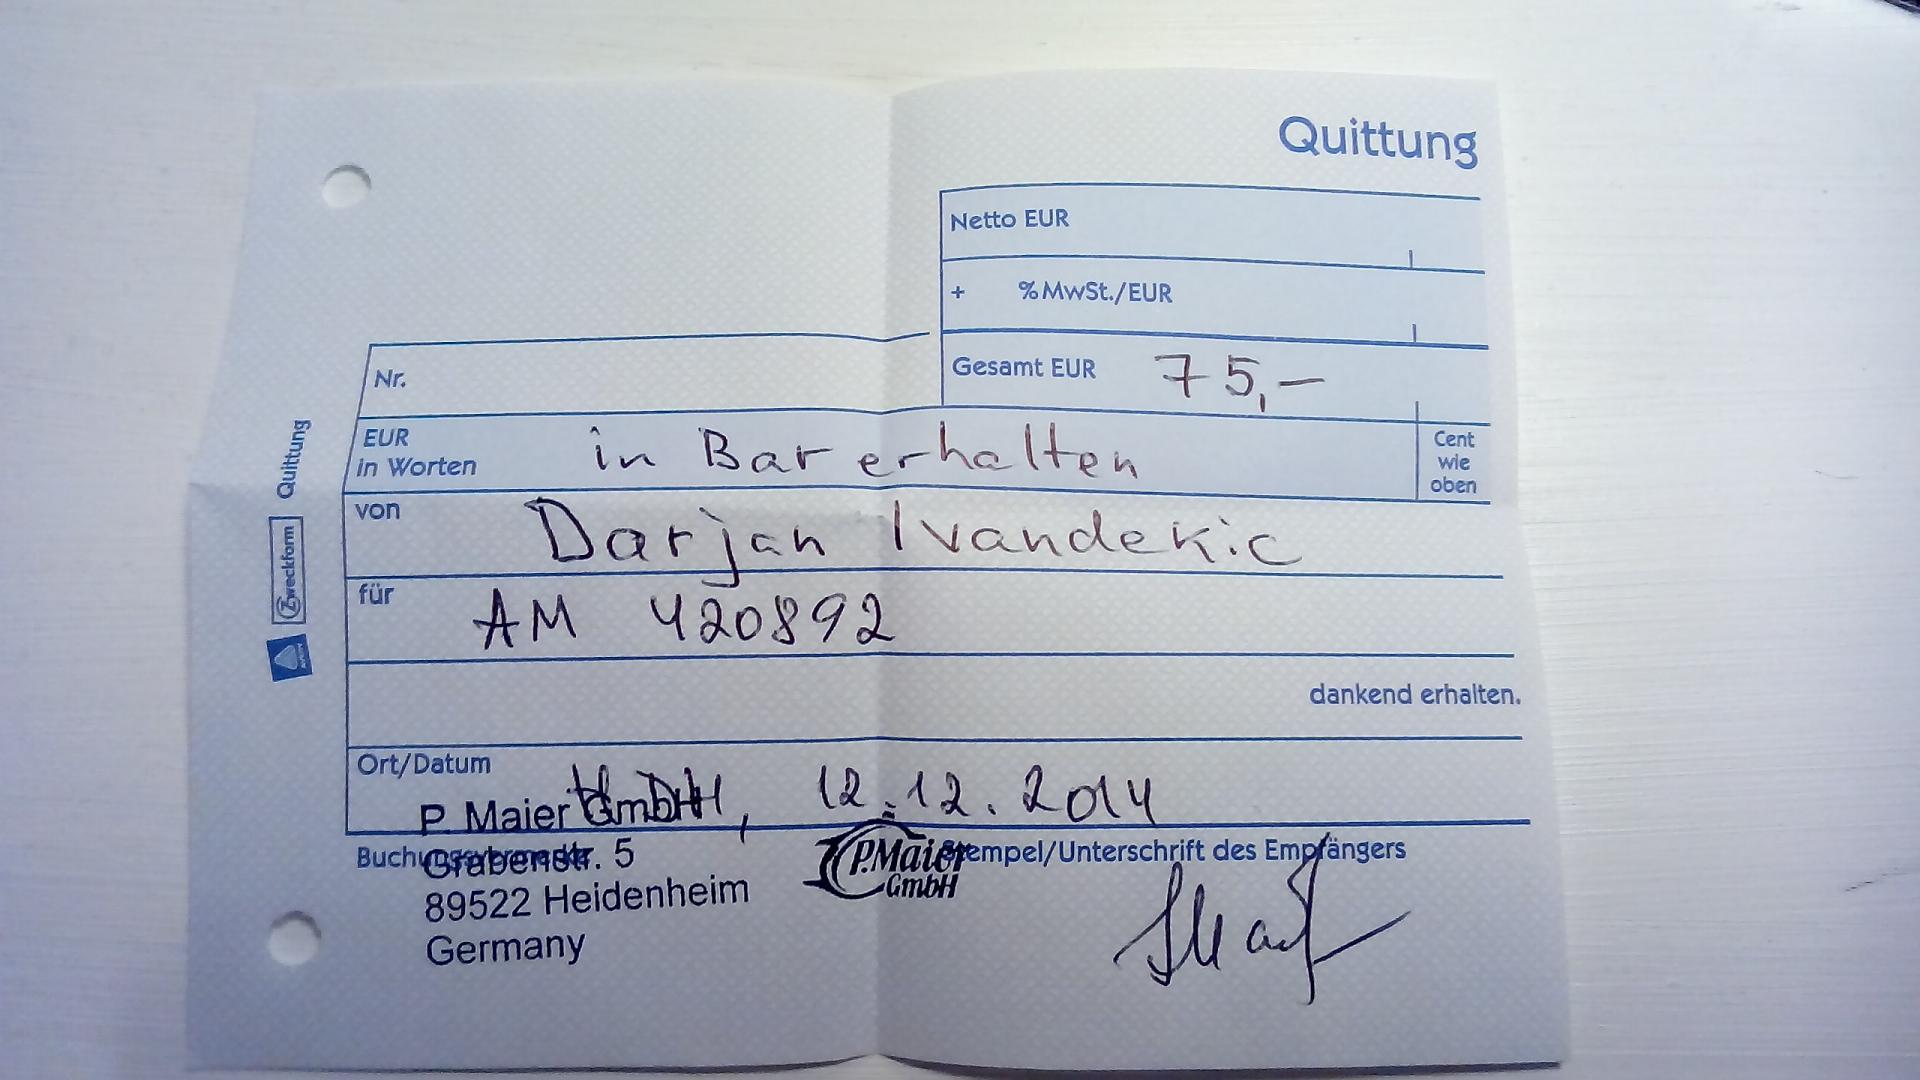 Quittung
Netto EUR
+ % MwSt./EUR
Gesamt EUR 75,–
Nr.
EUR in Worten in Bar erhalten
Cent wie oben
von Darjan Ivandekic
für AM 420892
dankend erhalten.
Ort/Datum HDH, 12.12.2014
P. Maier GmbH
Buchungsvermerke
Grabenstr. 5
89522 Heidenheim
Germany
P.Maier
GmbH
Stempel/Unterschrift des Empfängers
Zweckform Quittung